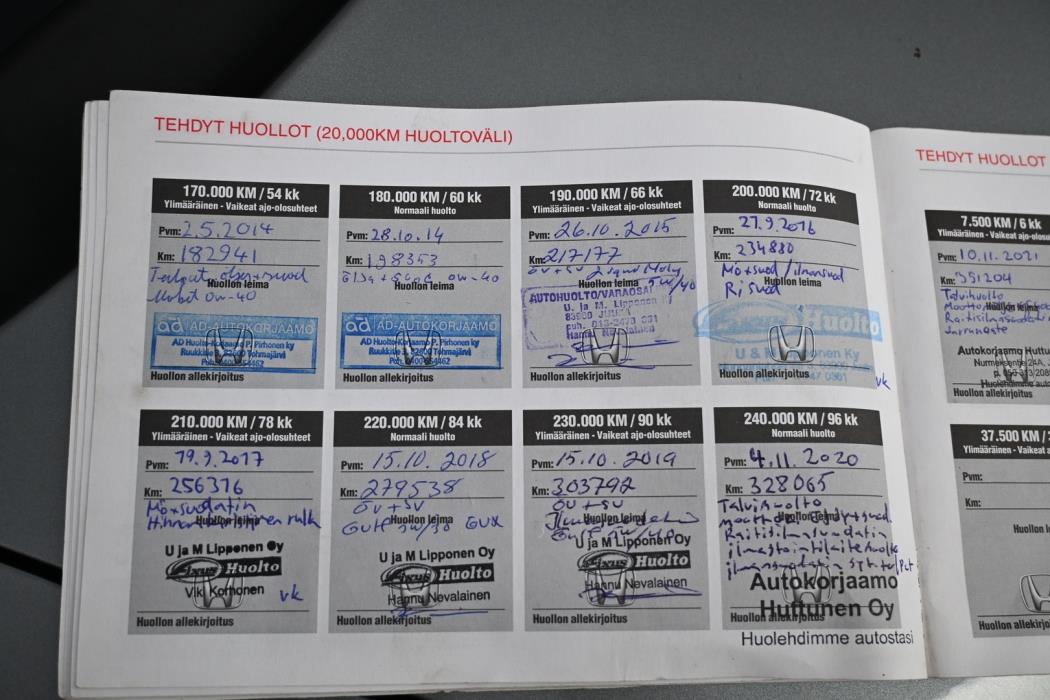 TEHDYT HUOLLOT (20,000KM HUOLTOVÄLI)
170.000 KM / 54 kk
Ylimääräinen - Vaikeat ajo-olosuhteet
Pvm: 2.5.2014
Km: 182941
Huollon leima
Mobil 0w-40
ad AD-AUTOKORJAAMO
AD Huolto-Korjaamo P. Pirhonen ky
Ruukkitie 5, 82600 Tohmajärvi
Huollon allekirjoitus
180.000 KM / 60 kk
Normaali huolto
Pvm: 28.10.14
Km: 198353
0w-40
Huollon leima
ad AD-AUTOKORJAAMO
AD Huolto-Korjaamo P. Pirhonen ky
Ruukkitie 5, 82600 Tohmajärvi
Huollon allekirjoitus
190.000 KM / 66 kk
Ylimääräinen - Vaikeat ajo-olosuhteet
Pvm: 26.10.2015
Km: 217177
öv + sv Liqui Moly
Huollon leima 5w/40
AUTOHUOLTO/VARAOSAT
U. ja M. Lipponen
83900 JUUKA
Hannu Nevalainen
Huollon allekirjoitus
200.000 KM / 72 kk
Normaali huolto
Pvm: 27.9.2016
Km: 234880
Mö+suod / ilmansuod
Huollon leima
Ri suod
Huolto
U & M Lipponen Ky
Huollon allekirjoitus
vk
210.000 KM / 78 kk
Ylimääräinen - Vaikeat ajo-olosuhteet
Pvm: 19.9.2017
Km: 256376
Mö+suodatin
Huollon leima
U ja M Lipponen Oy
Fixus Huolto
Vlk Korhonen
vk
Huollon allekirjoitus
220.000 KM / 84 kk
Normaali huolto
Pvm: 15.10.2018
Km: 279538
öv + sv
Gulf 5w/30 GUX
Huollon leima
U ja M Lipponen Oy
Fixus Huolto
Hannu Nevalainen
Huollon allekirjoitus
230.000 KM / 90 kk
Ylimääräinen - Vaikeat ajo-olosuhteet
Pvm: 15.10.2019
Km: 303792
öv + sv
Huollon leima
U ja M Lipponen Oy
Fixus Huolto
Hannu Nevalainen
Huollon allekirjoitus
240.000 KM / 96 kk
Normaali huolto
Pvm: 4.11.2020
Km: 328065
Talvihuolto
Huollon leima
Raitisilmasuodatin
ilmastointilaitehuolto
Autokorjaamo
Huttunen Oy
Huollon allekirjoitus
Huolehdimme autostasi
TEHDYT HUOLLOT
7.500 KM / 6 kk
Ylimääräinen - Vaikeat ajo-olosu
Pvm: 10.11.2021
Km: 351204
Talvihuolto
Raitisilmasuodatin
Jarruneste
Autokorjaamo Huttu
Nurmeksentie 24A,
Huolehdimme auto
Huollon allekirjoitus
37.500 KM /
Ylimääräinen - Vaikeat a
Pvm:
Km:
Huollon l
Huollon allekirjoitus